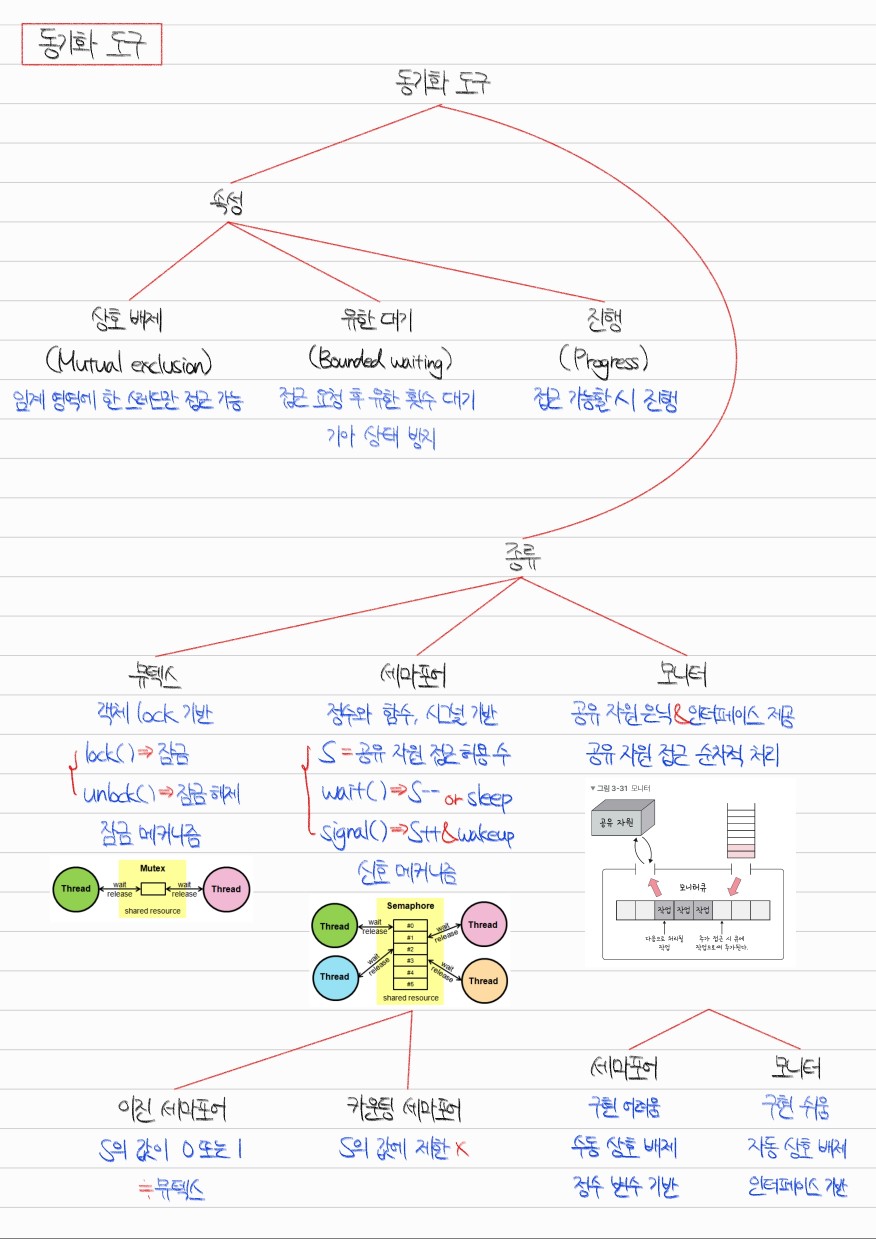 동기화 도구
동기화 도구
속성
상호 배제
(Mutual exclusion)
임계 영역에 한 스레드만 접근 가능
유한 대기
(Bounded waiting)
접근 요청 후 유한 횟수 대기
기아 상태 방지
진행
(Progress)
접근 가능할 시 진행
종류
뮤텍스
객체 lock 기반
lock() ⇒ 잠금
unlock() ⇒ 잠금 해제
잠금 메커니즘
Mutex
Thread
wait
release
wait
release
Thread
shared resource
세마포어
정수와 함수, 시그널 기반
S = 공유 자원 접근 허용 수
wait() ⇒ S-- or sleep
signal() ⇒ S++ & wakeup
신호 메커니즘
Semaphore
Thread
wait
release
#0
#1
#2
#3
#4
#5
wait
release
Thread
Thread
wait
release
wait
release
Thread
shared resource
모니터
공유 자원 은닉 & 인터페이스 제공
공유 자원 접근 순차적 처리
▼ 그림 3-31 모니터
공유 자원
모니터큐
작업 작업 작업
다음으로 처리될
작업
추가 접근 시 큐에
작업으로써 추가된다.
이진 세마포어
S의 값이 0 또는 1
≒ 뮤텍스
카운팅 세마포어
S의 값에 제한 X
세마포어
구현 어려움
수동 상호 배제
정수 변수 기반
모니터
구현 쉬움
자동 상호 배제
인터페이스 기반